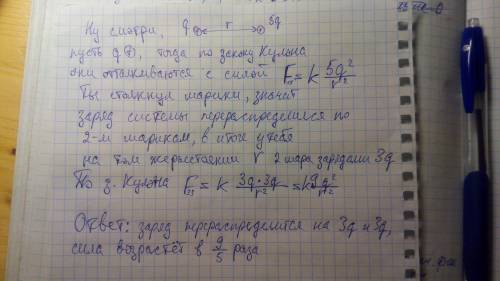 Ну смотри, q r 3q
пусть q ⊕, тогда по закону Кулона
они отталкиваются с силой F = k 5q²/r²
Ты столкнул шарики, значит
заряд системы перераспределился по
2-м шариком, в итоге у тебя
на том же расстоянии r 2 шара зарядами 3q
По з. Кулона F = k 3q·3q/r² = k 9q²/r²
Ответ: заряд перераспределится на 3q и 3q,
сила возрастёт в 9/5 раза